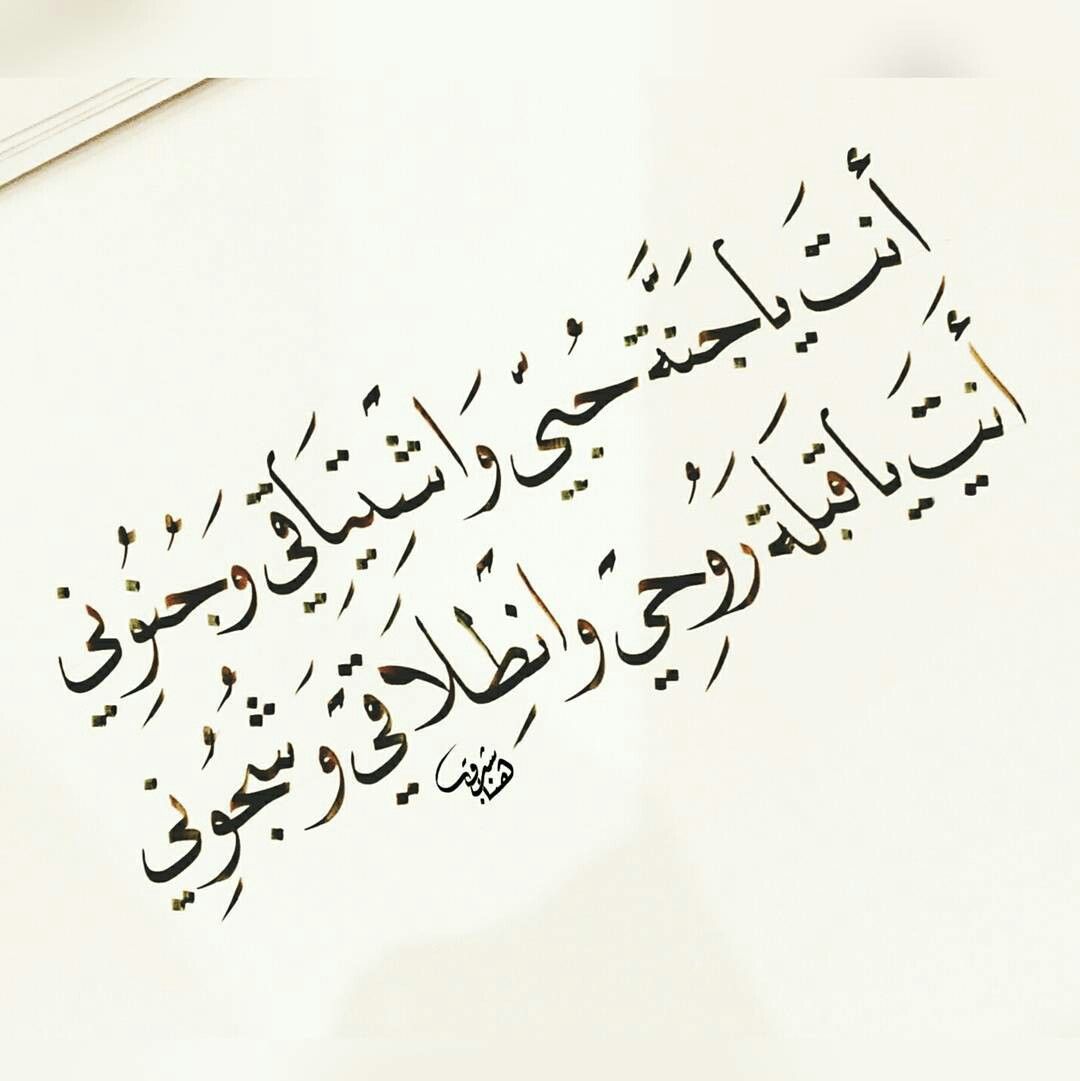 أنتَ يا جنَّةَ حُبّي وَاشْتِيَاقي وَجُنُوني
أنتَ يا قبلَةَ رُوحِي وَانْطِلَاقِي وَشُجُوني